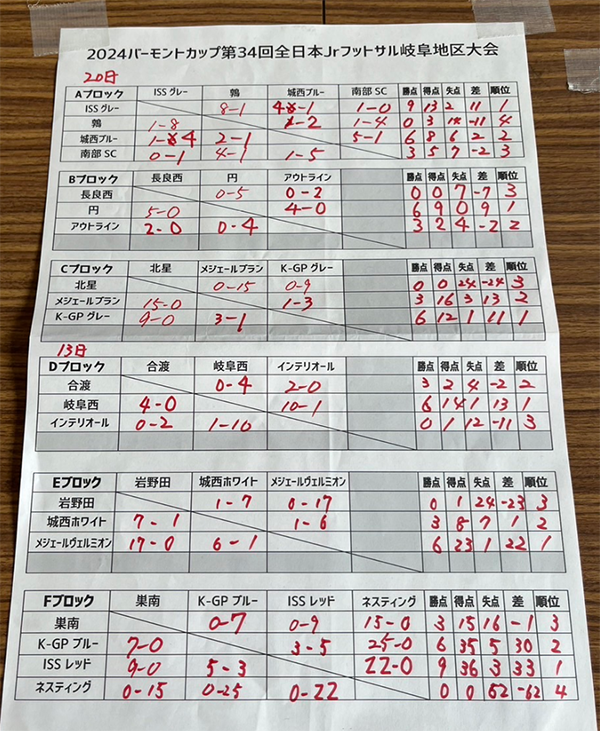 2024バーモントカップ第34回全日本Jrフットサル岐阜地区大会
20日
Aブロック ISS グレー 鶉 城西ブルー 南部 SC 勝点 得点 失点 差 順位
ISS グレー 8-1 4-1 1-0 9 13 2 11 1
鶉 1-8 1-2 1-4 0 3 14 -11 4
城西ブルー 1-4 2-1 5-1 6 8 6 2 2
南部 SC 0-1 4-1 1-5 3 5 7 -2 3
Bブロック 長良西 円 アウトライン 勝点 得点 失点 差 順位
長良西 0-5 0-2 0 0 7 -7 3
円 5-0 4-0 6 9 0 9 1
アウトライン 2-0 0-4 3 2 4 -2 2
Cブロック 北星 メジェールブラン K-GP グレー 勝点 得点 失点 差 順位
北星 0-15 0-9 0 0 24 -24 3
メジェールブラン 15-0 1-3 3 16 3 13 2
K-GP グレー 9-0 3-1 6 12 1 11 1
13日
Dブロック 合渡 岐阜西 インテリオール 勝点 得点 失点 差 順位
合渡 0-4 2-0 3 2 4 -2 2
岐阜西 4-0 10-1 6 14 1 13 1
インテリオール 0-2 1-10 0 1 12 -11 3
Eブロック 岩野田 城西ホワイト メジェールヴェルミオン 勝点 得点 失点 差 順位
岩野田 1-7 0-17 0 1 24 -23 3
城西ホワイト 7-1 1-6 3 8 7 1 2
メジェールヴェルミオン 17-0 6-1 6 23 1 22 1
Fブロック 巣南 K-GP ブルー ISS レッド ネスティング 勝点 得点 失点 差 順位
巣南 0-7 0-9 15-0 3 15 16 -1 3
K-GP ブルー 7-0 3-5 25-0 6 35 5 30 2
ISS レッド 9-0 5-3 22-0 9 36 3 33 1
ネスティング 0-15 0-25 0-22 0 0 62 -62 4